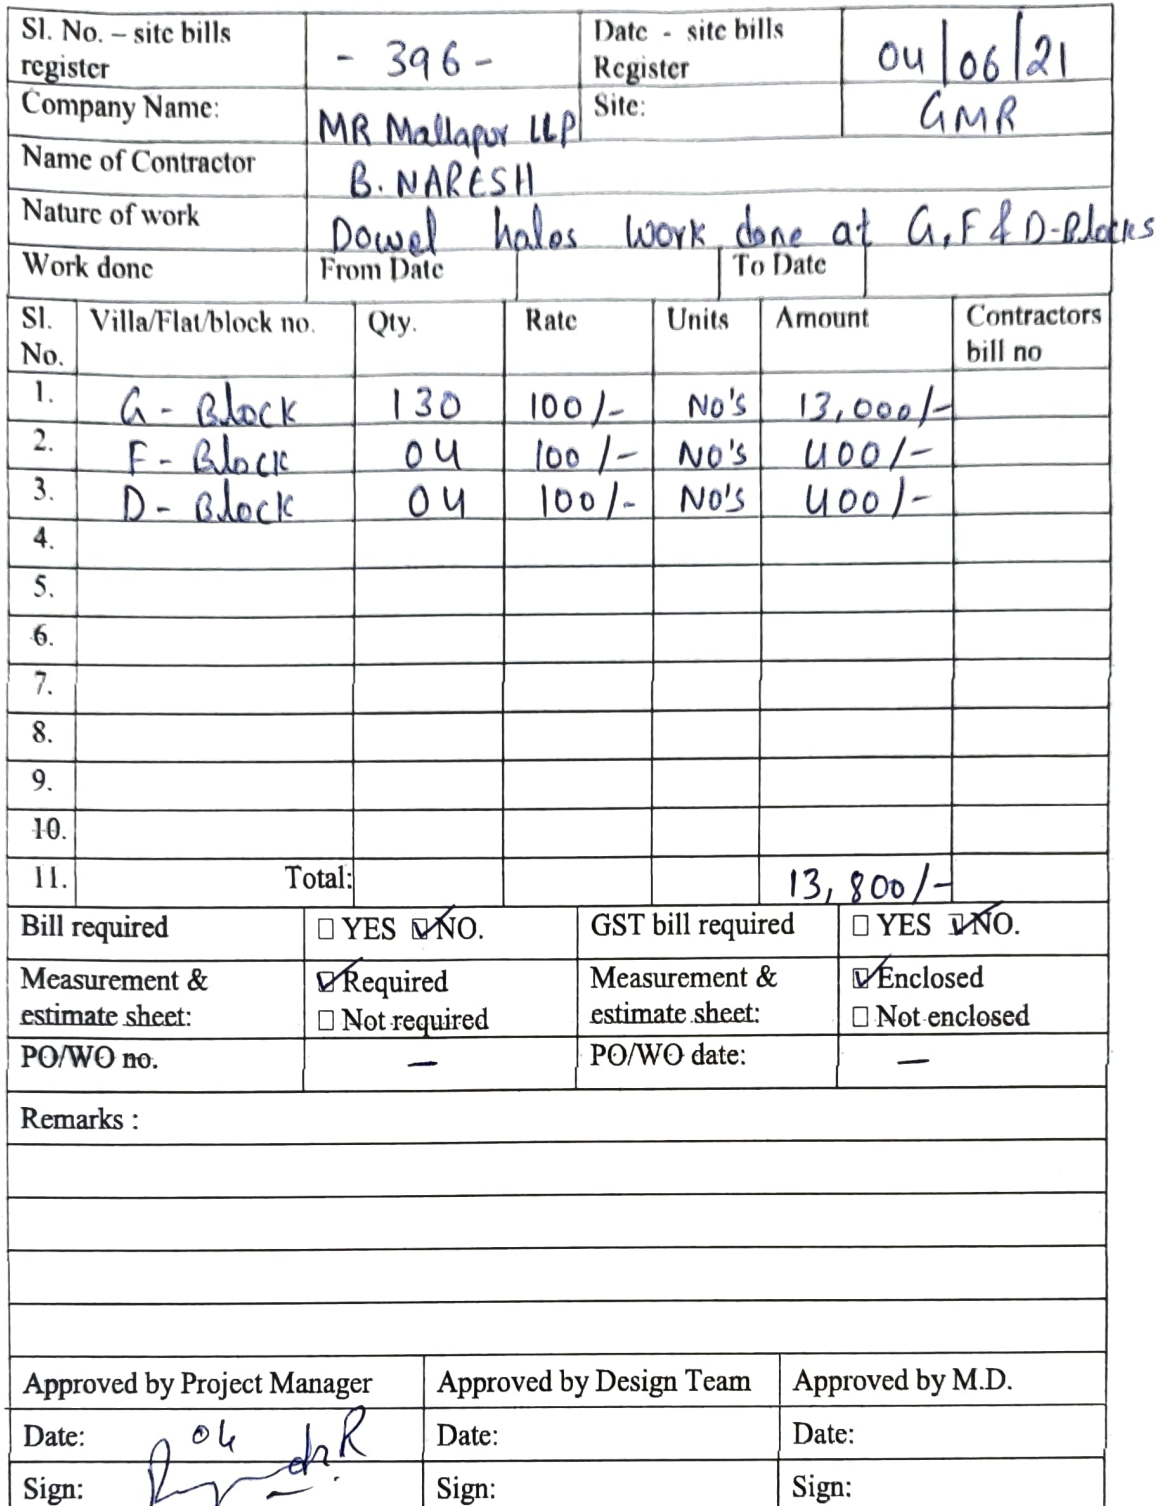 Sl. No. – site bills register - 396 - Date - site bills Register 04/06/21
Company Name: MR Mallapur LLP Site: GMR
Name of Contractor B. NARESH
Nature of work Dowel holes work done at G, F & D-Blocks
Work done From Date To Date
Sl. No. Villa/Flat/block no. Qty. Rate Units Amount Contractors bill no
1. G - Block 130 100/- No's 13,000/-
2. F - Block 04 100/- No's 400/-
3. D - Block 04 100/- No's 400/-
4.
5.
6.
7.
8.
9.
10.
11. Total: 13,800/-
Bill required ☐ YES ☑ NO. GST bill required ☐ YES ☑ NO.
Measurement & estimate sheet: ☑ Required ☐ Not required Measurement & estimate sheet: ☑ Enclosed ☐ Not enclosed
PO/WO no. — PO/WO date: —
Remarks :
Approved by Project Manager Approved by Design Team Approved by M.D.
Date: 04 Date: Date:
Sign: Sign: Sign: